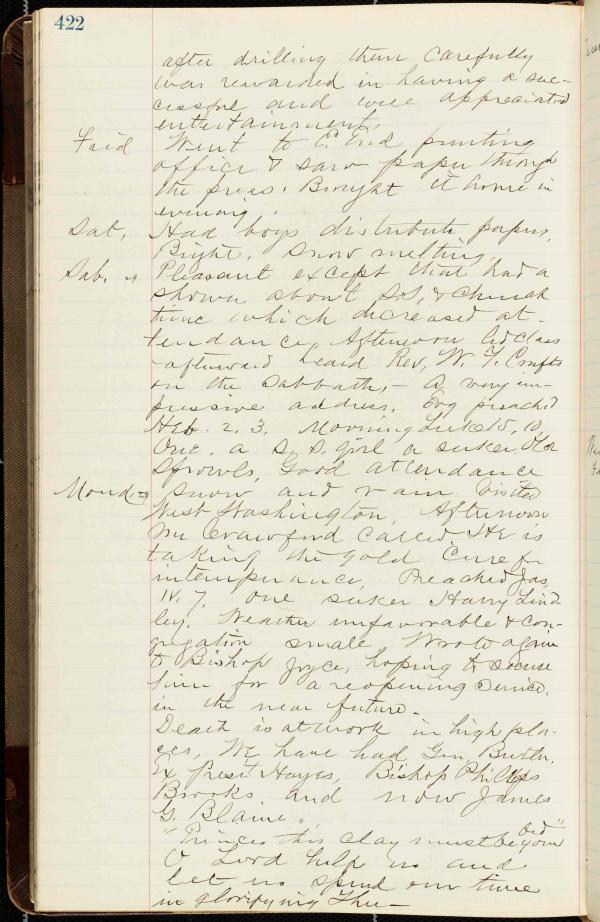 422
after drilling them carefully
was rewarded in having a suc-
cessful and well appreciated
entertainment.
Frid Went to E. End printing
office & saw paper through
the press. Brought it home in
evening.
Sat. Had boys distribute papers.
Bright. Snow melting.
Sab. Pleasant except that had a
shower about S.S. & Church
time which decreased at-
tendance. Afternoon led class
afterward heard Rev. W. F. Crafts
on the Sabbath,- A very im-
pressive address. Evg preached
Heb. 2, 3. Morning Luke 15, 10,
One, a S. S. girl a seeker. Ola
Sprowls, Good attendance
Mond. Snow and rain. Visited
West Washington. Afternoon
Mr Crawford called He is
taking the gold cure for
intemperance, Preached Jas,
14, 7, one seeker Harry Lind-
ley. Weather unfavorable & con-
gregation small Wrote again
to Bishop Joyce, hoping to secure
him for a reopening service.
in the near future.
Death is at work in high pla-
ces, We have had Gen Butler.
Ex Prest Hayes, Bishop Phillips
Brooks and now James
G. Blaine.
"Princes this clay must be your bed"
O Lord help us and
let us spend our time
in glorifying Thee-